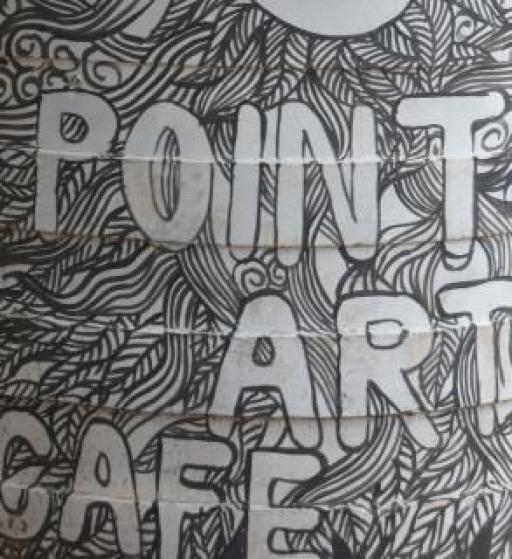 POINT
ART
CAFE